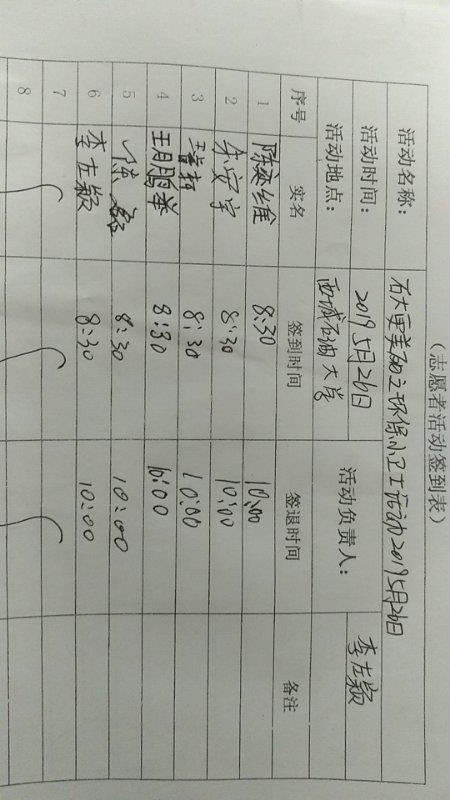 （志愿者活动签到表）
活动名称： 石大更美丽之环保小卫士活动2019 5月26日
活动时间： 2019 5月26日 活动负责人： 李左颖
活动地点： 西城石油大学
序号 实名 签到时间 签退时间 备注
1 陈梁维 8:30 10:00
2 朱安宇 8:30 10:00
3 8:30 10:00
4 王月鹏举 8:30 10:00
5 8:30 10:00
6 李左颖 8:30 10:00
7
8